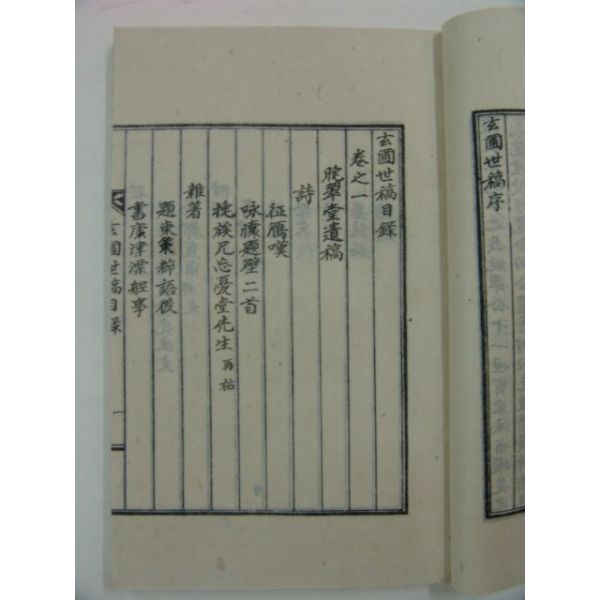 玄圃世稿序
玄圃世稿目錄
卷之一
晚翠堂遺稿
詩
征鴈嘆
咏懷題壁二首
挽族兄忘憂堂先生 再祐
雜著
題東策粹語後
書廣津漂艇事
玄圃世稿目錄
一